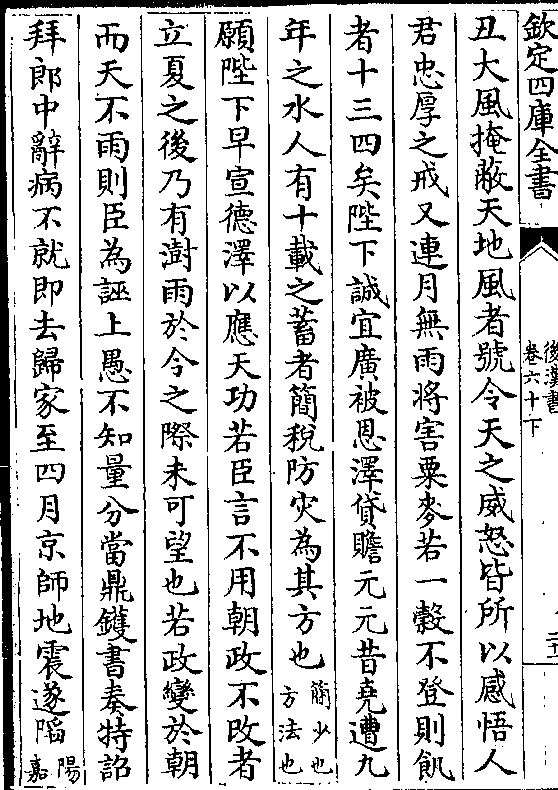 欽定四庫全書
後漢書
卷六十下
丑大風掩蔽天地風者號令天之威怒皆所以感悟人
君忠厚之戒又連月無雨将害粟麥若一穀不登則飢
者十三四矣陛下誠宜廣被恩澤貸贍元元昔堯遭九
年之水人有十載之蓄者簡稅防灾為其方也簡少也方法也
願陛下早宣德澤以應天功若臣言不用朝政不攺者
立夏之後乃有澍雨於今之際未可望也若政變於朝
而天不雨則臣為誣上愚不知量分當鼎鑊書奏特詔
拜郎中辭病不就即去歸家至四月京師地震遂䧟陽嘉